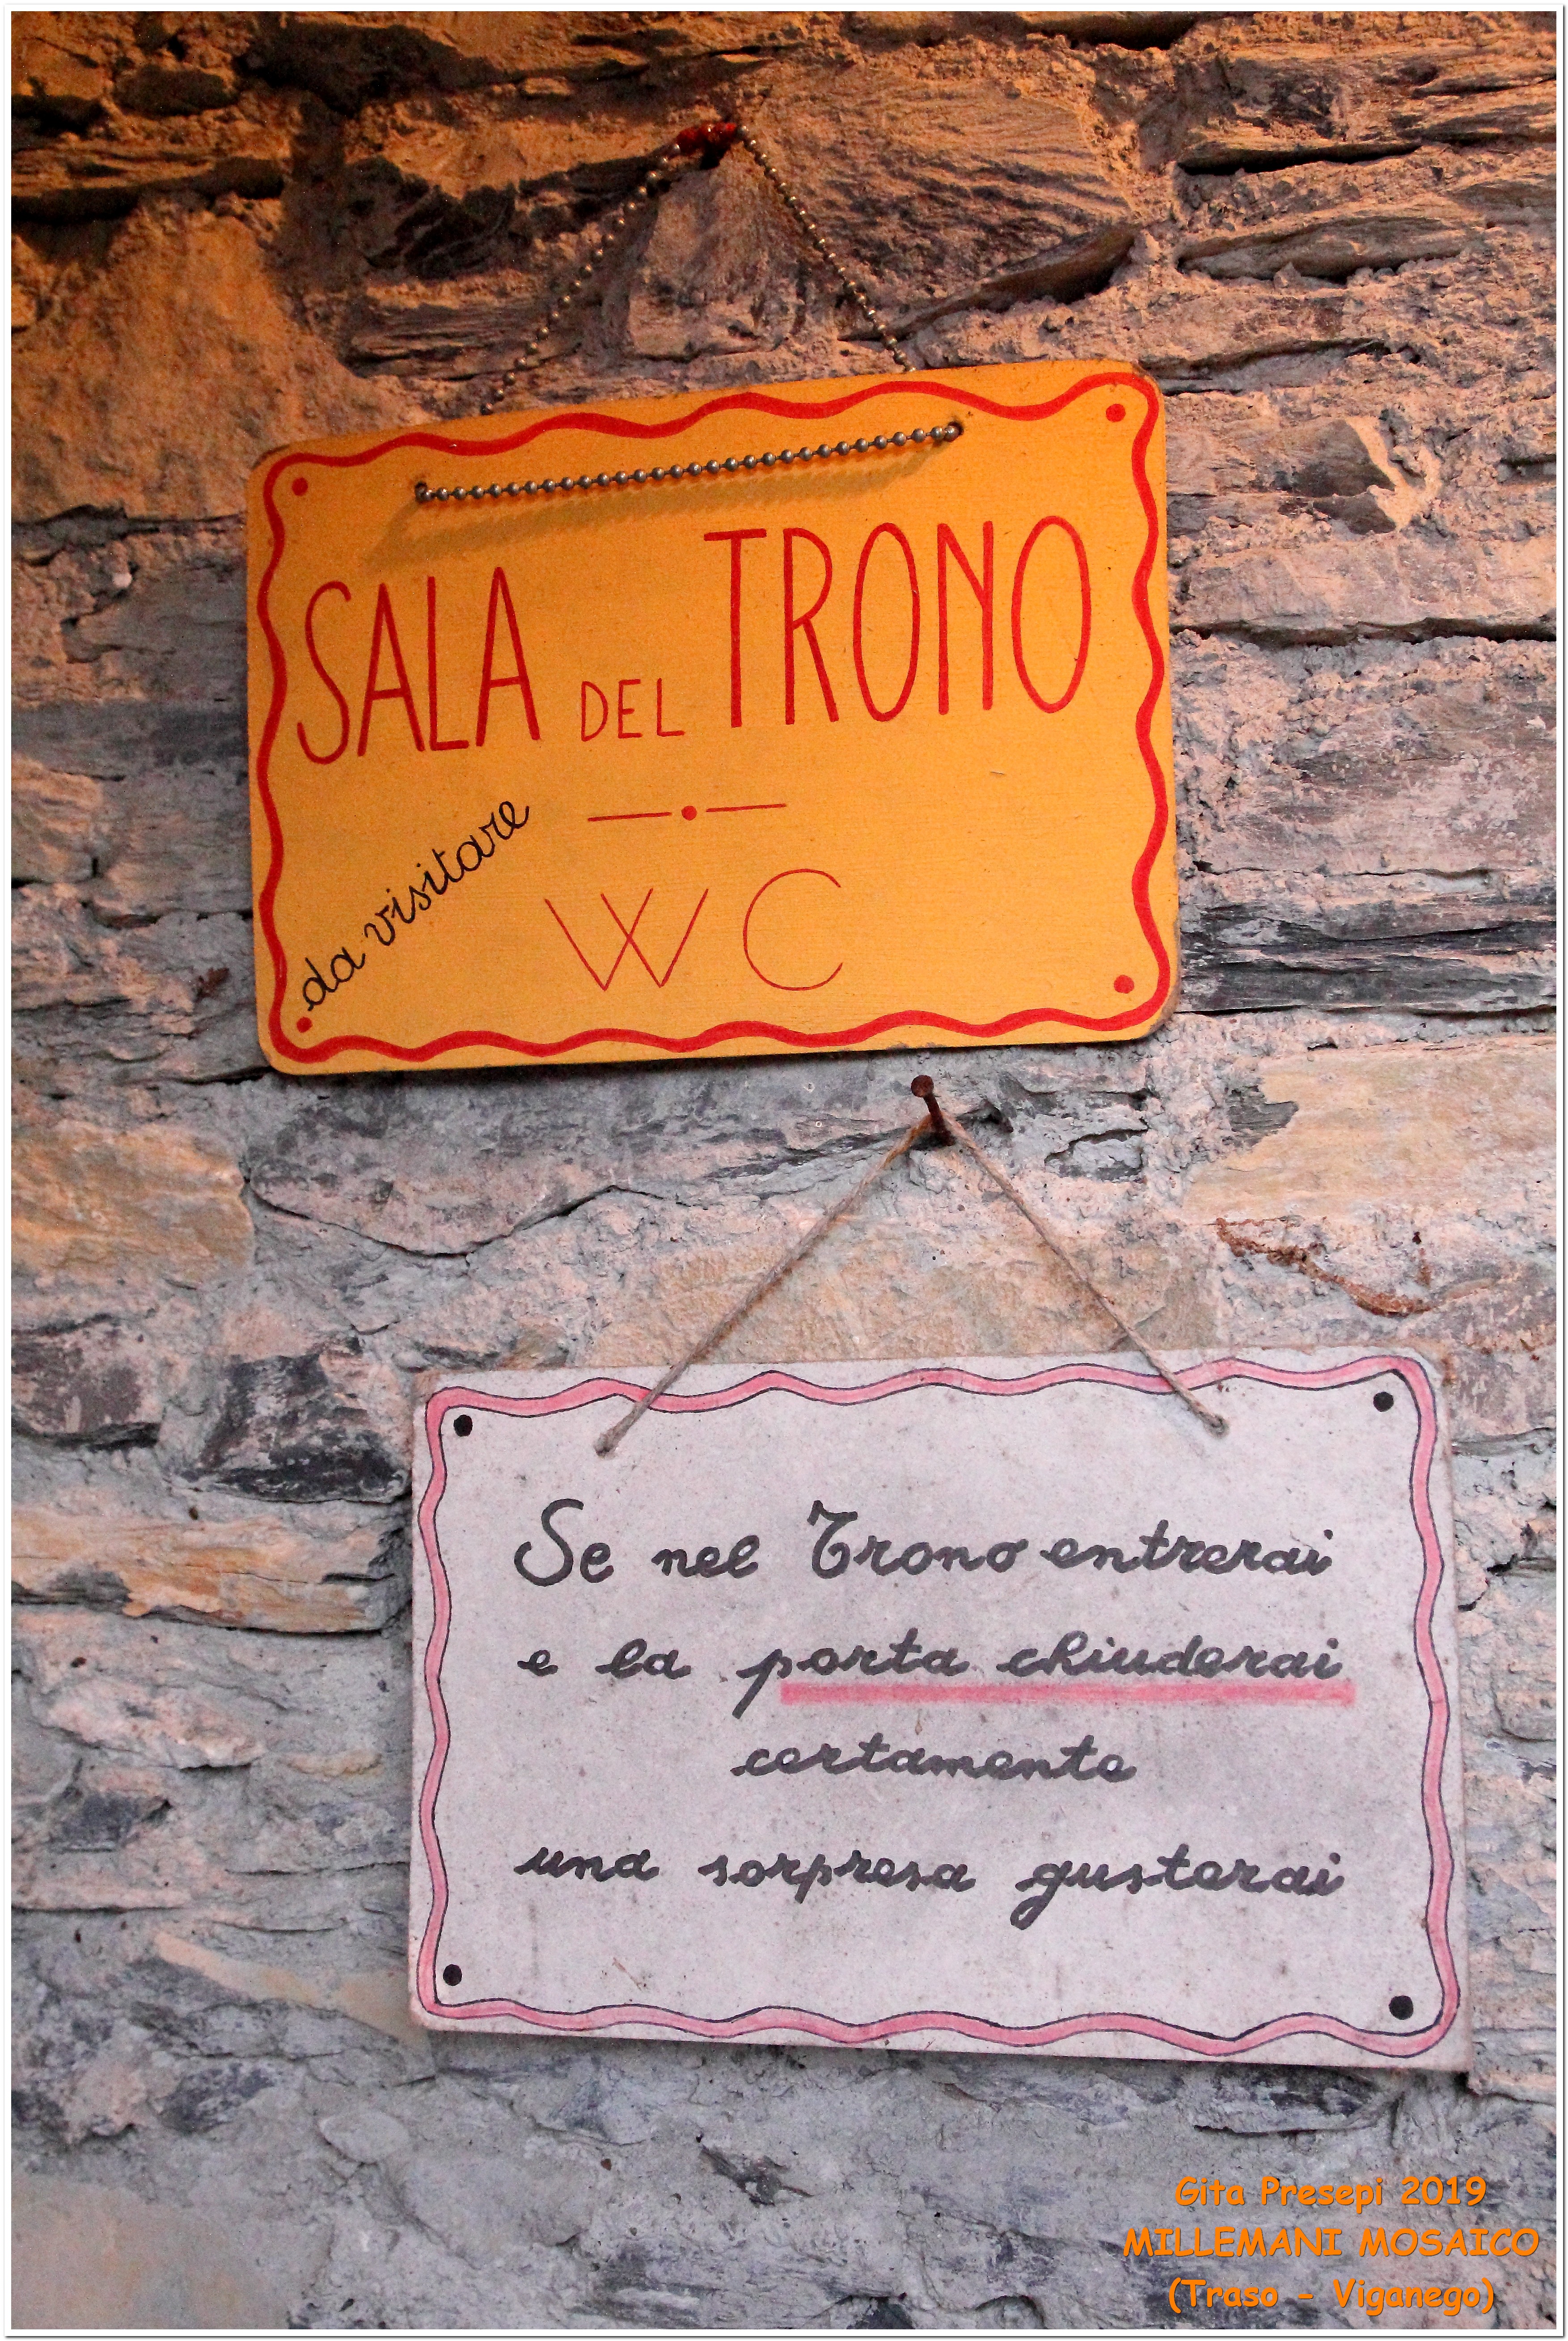 SALA DEL TRONO
da visitare
WC
Se nel Trono entrerai
e la porta chiuderai
certamente
una sorpresa gusterai
Gita Presepi 2019
MILLEMANI MOSAICO
(Traso - Viganego)